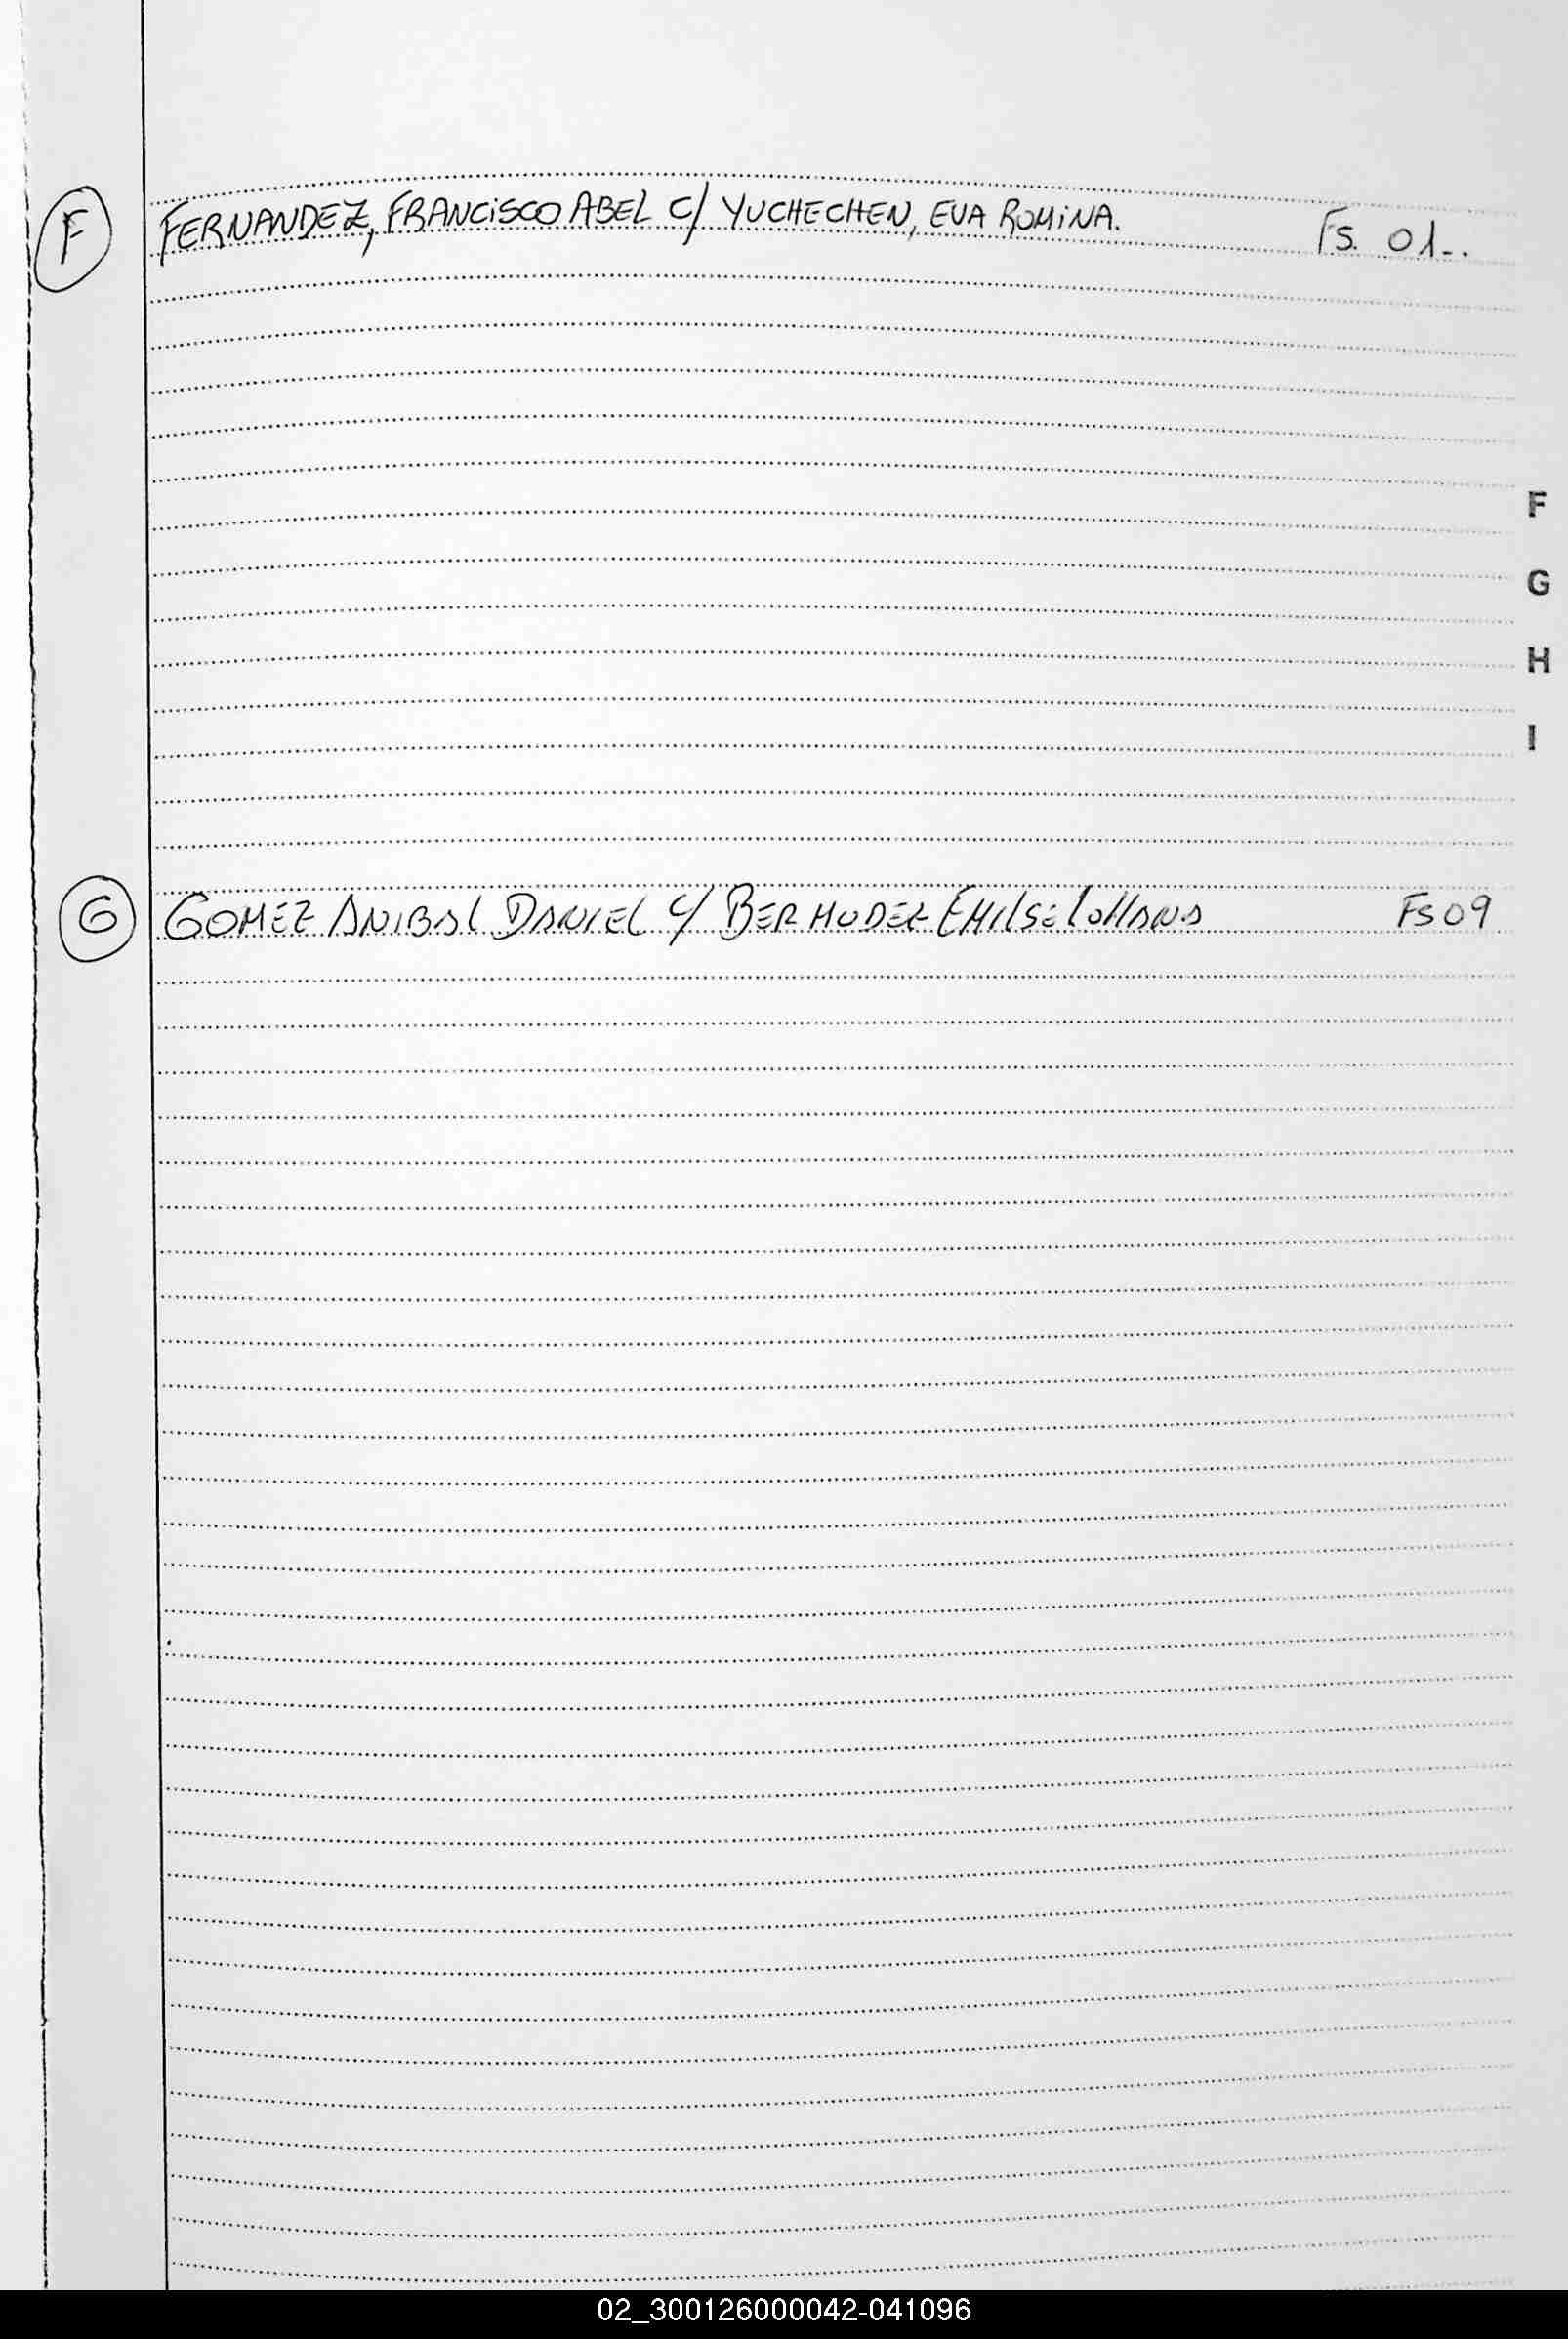 F FERNANDEZ, FRANCISCO ABEL C/ YUCHECHEN, EVA ROMINA. Fs. 01-.
F
G
H
I
G GOMEZ ANIBAL DANIEL C/ BERMUDEZ EMILSE Fs 09
02_300126000042-041096